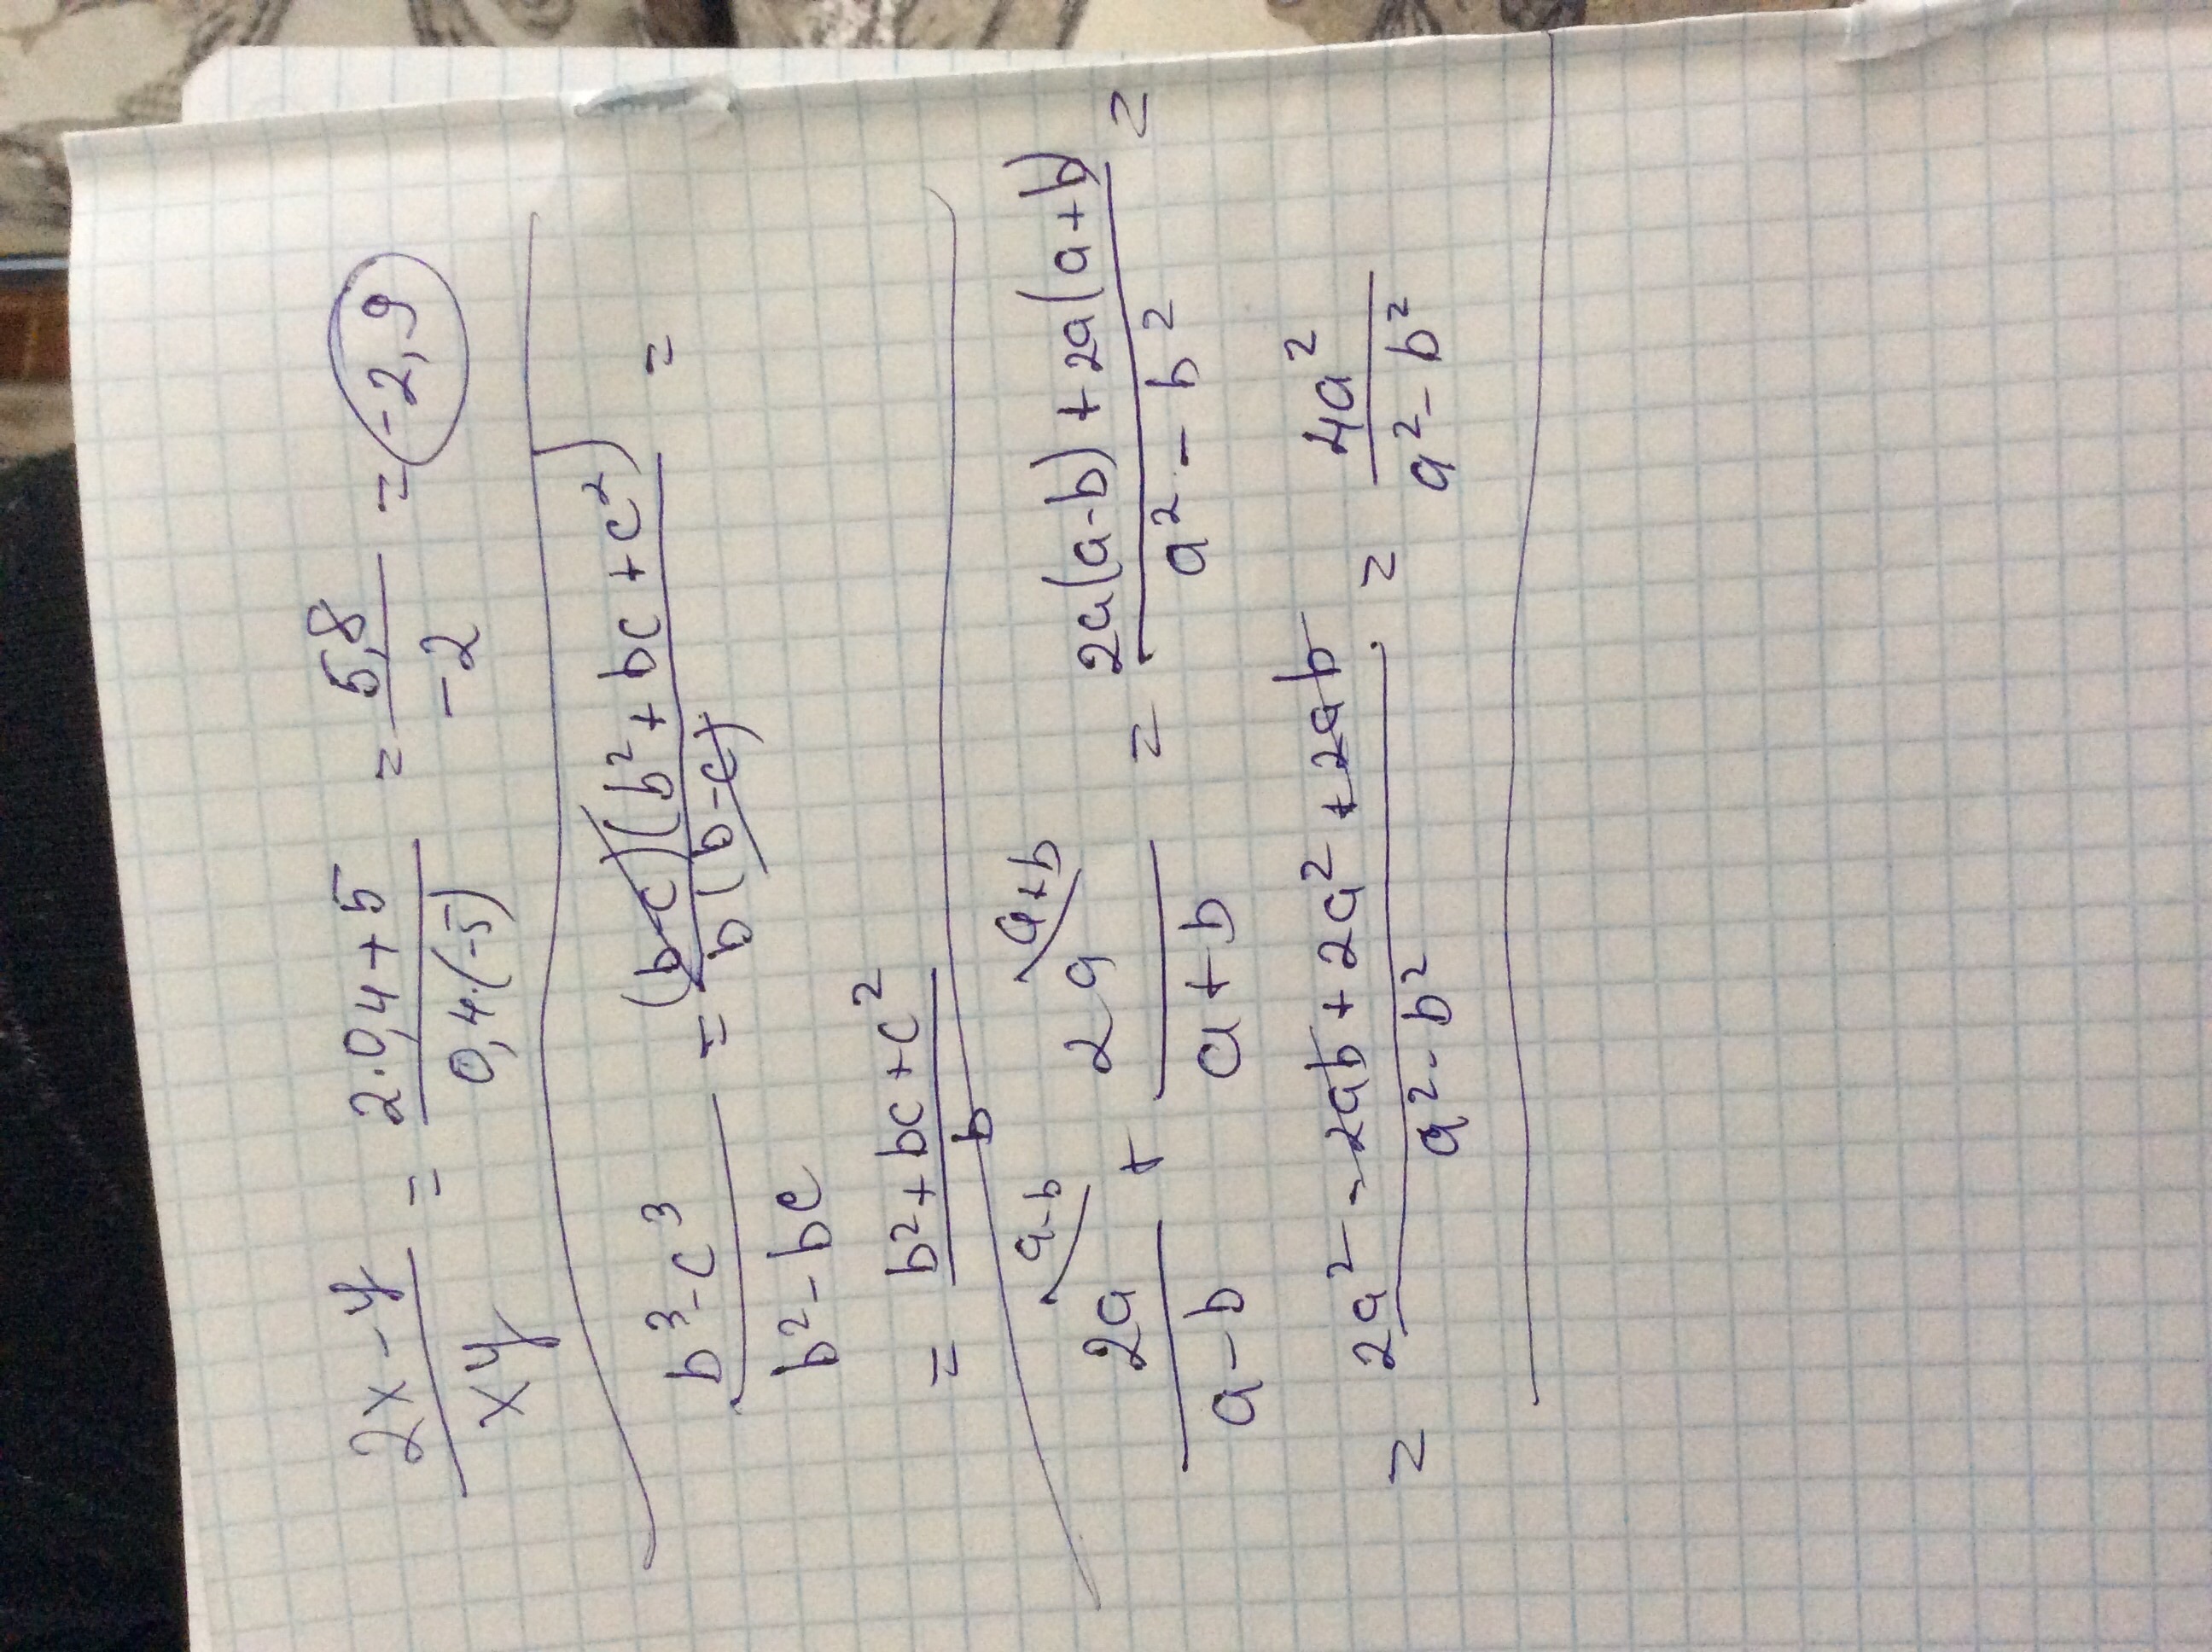 2x-y/xy = 2·0,4+5/0,4·(-5) = 5,8/-2 = -2,9
b³-c³/b²-bc = (b-c)(b²+bc+c²)/b(b-c) =
= b²+bc+c²/b
2a\a-b/a-b + 2a\a+b/a+b = 2a(a-b)+2a(a+b)/a²-b² =
= 2a²-2ab+2a²+2ab/a²-b² = 4a²/a²-b²